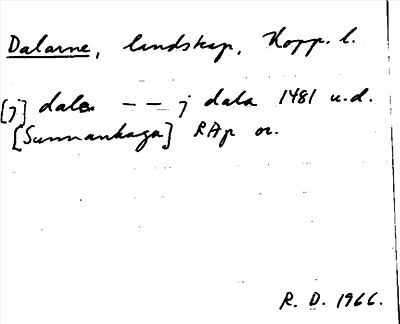 Dalarne, landskap, Kopp. l.
[j] dale – – j dala 1481 u.d.
[Sunnanhaga] RAp or.
R. D. 1966.